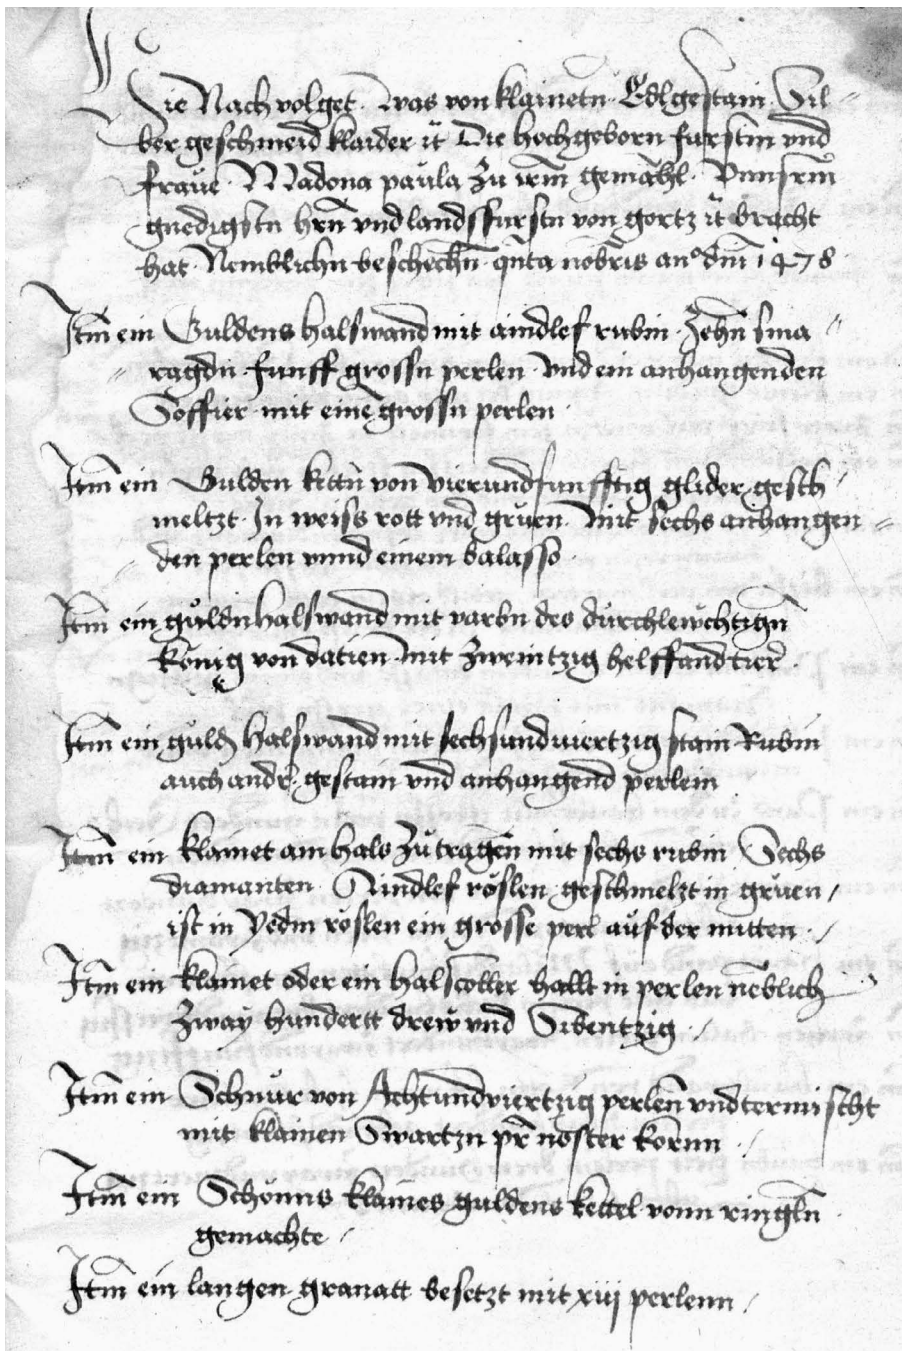 Hie Nach volget. Was von klainetn. Edlgestain. Sil-
ber geschmeid klaider ꝛc Die hochgeborn furstin vnd
fraůe. Madona paůla Zu irm̄ gemāhl. Vnnsrm̄
gnedigistn hrn̄ vnd landsfurstn von gortz ꝛc bracht
hat. Nemblichn beschechn̄. qⁱnta nōbris anº dnī 1478
Itm̄ ein Guldens halswand mit aindlef rubin. Zehn̄ sma-
ragdn. funff grossn perlen. vnd ein anhangenden
Soffier. mit einē grossn perlen.
Itm̄ ein Gulden kettn̄ von vierundfunfftig glider. gesch-
meltzt. In weiss rott vnd grůen. Mit sechs anhangen-
den perlen vnnd einem balasso.
Itm̄ ein gůldn halswand mit varbn des dürchleẅchtign̄
könig von datien. mit Zweintzig helffandtier̄.
Itm̄ ein guld̄ halswand mit sechsundviertzig stain Rubin
auch andr̄. gestain vnd anhangend perlein
Itm̄ ein klainet am hals Zů tragen mit sechs rubin Sechs
diamanten. Aindlef röslen. geschmelzt in grůen,
ist in yedm röslen ein grosse perl aůf der mitten.
Itm̄ ein klainet oder ein halscoller hallt in perlen nēblich
Zway hundertt drew vnd Sibentzig.
Itm̄ ein Schnůr von Achtundviertzig perlen̄ vndtermischt
mit klainen Swartzn pr̄ noster kornn.
Itm̄ ein Schönns klaines guldens kettel vonn ringln̄
gemachte.
Itm̄ ein langen granatt besetzt mit xiij perlenn.